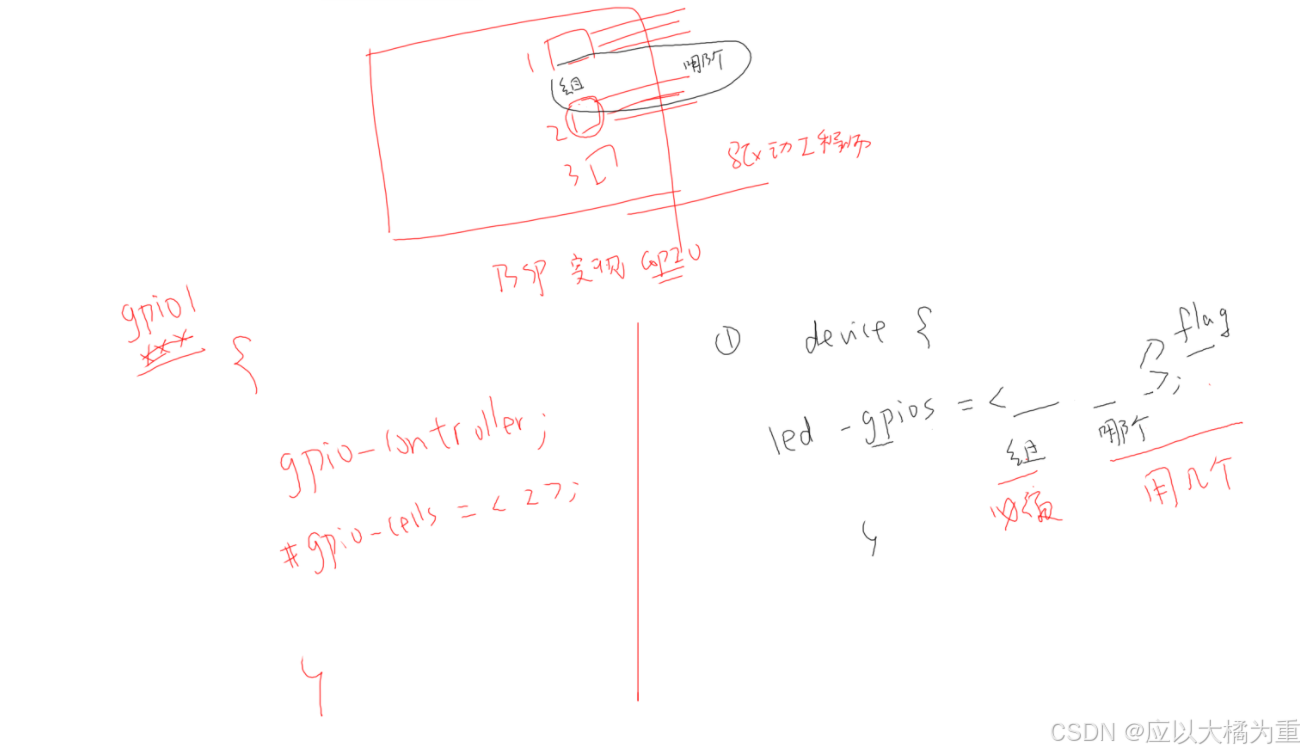 1
组 哪个
2
3
驱动工程师
BSP 实现 GPIO
gpio1
xxx {
gpio-controller;
#gpio-cells = < 2 >;
}
① device {
flag
led-gpios = < __ _ _ >;
组 哪个
必须 用几个
}
CSDN @应以大橘为重